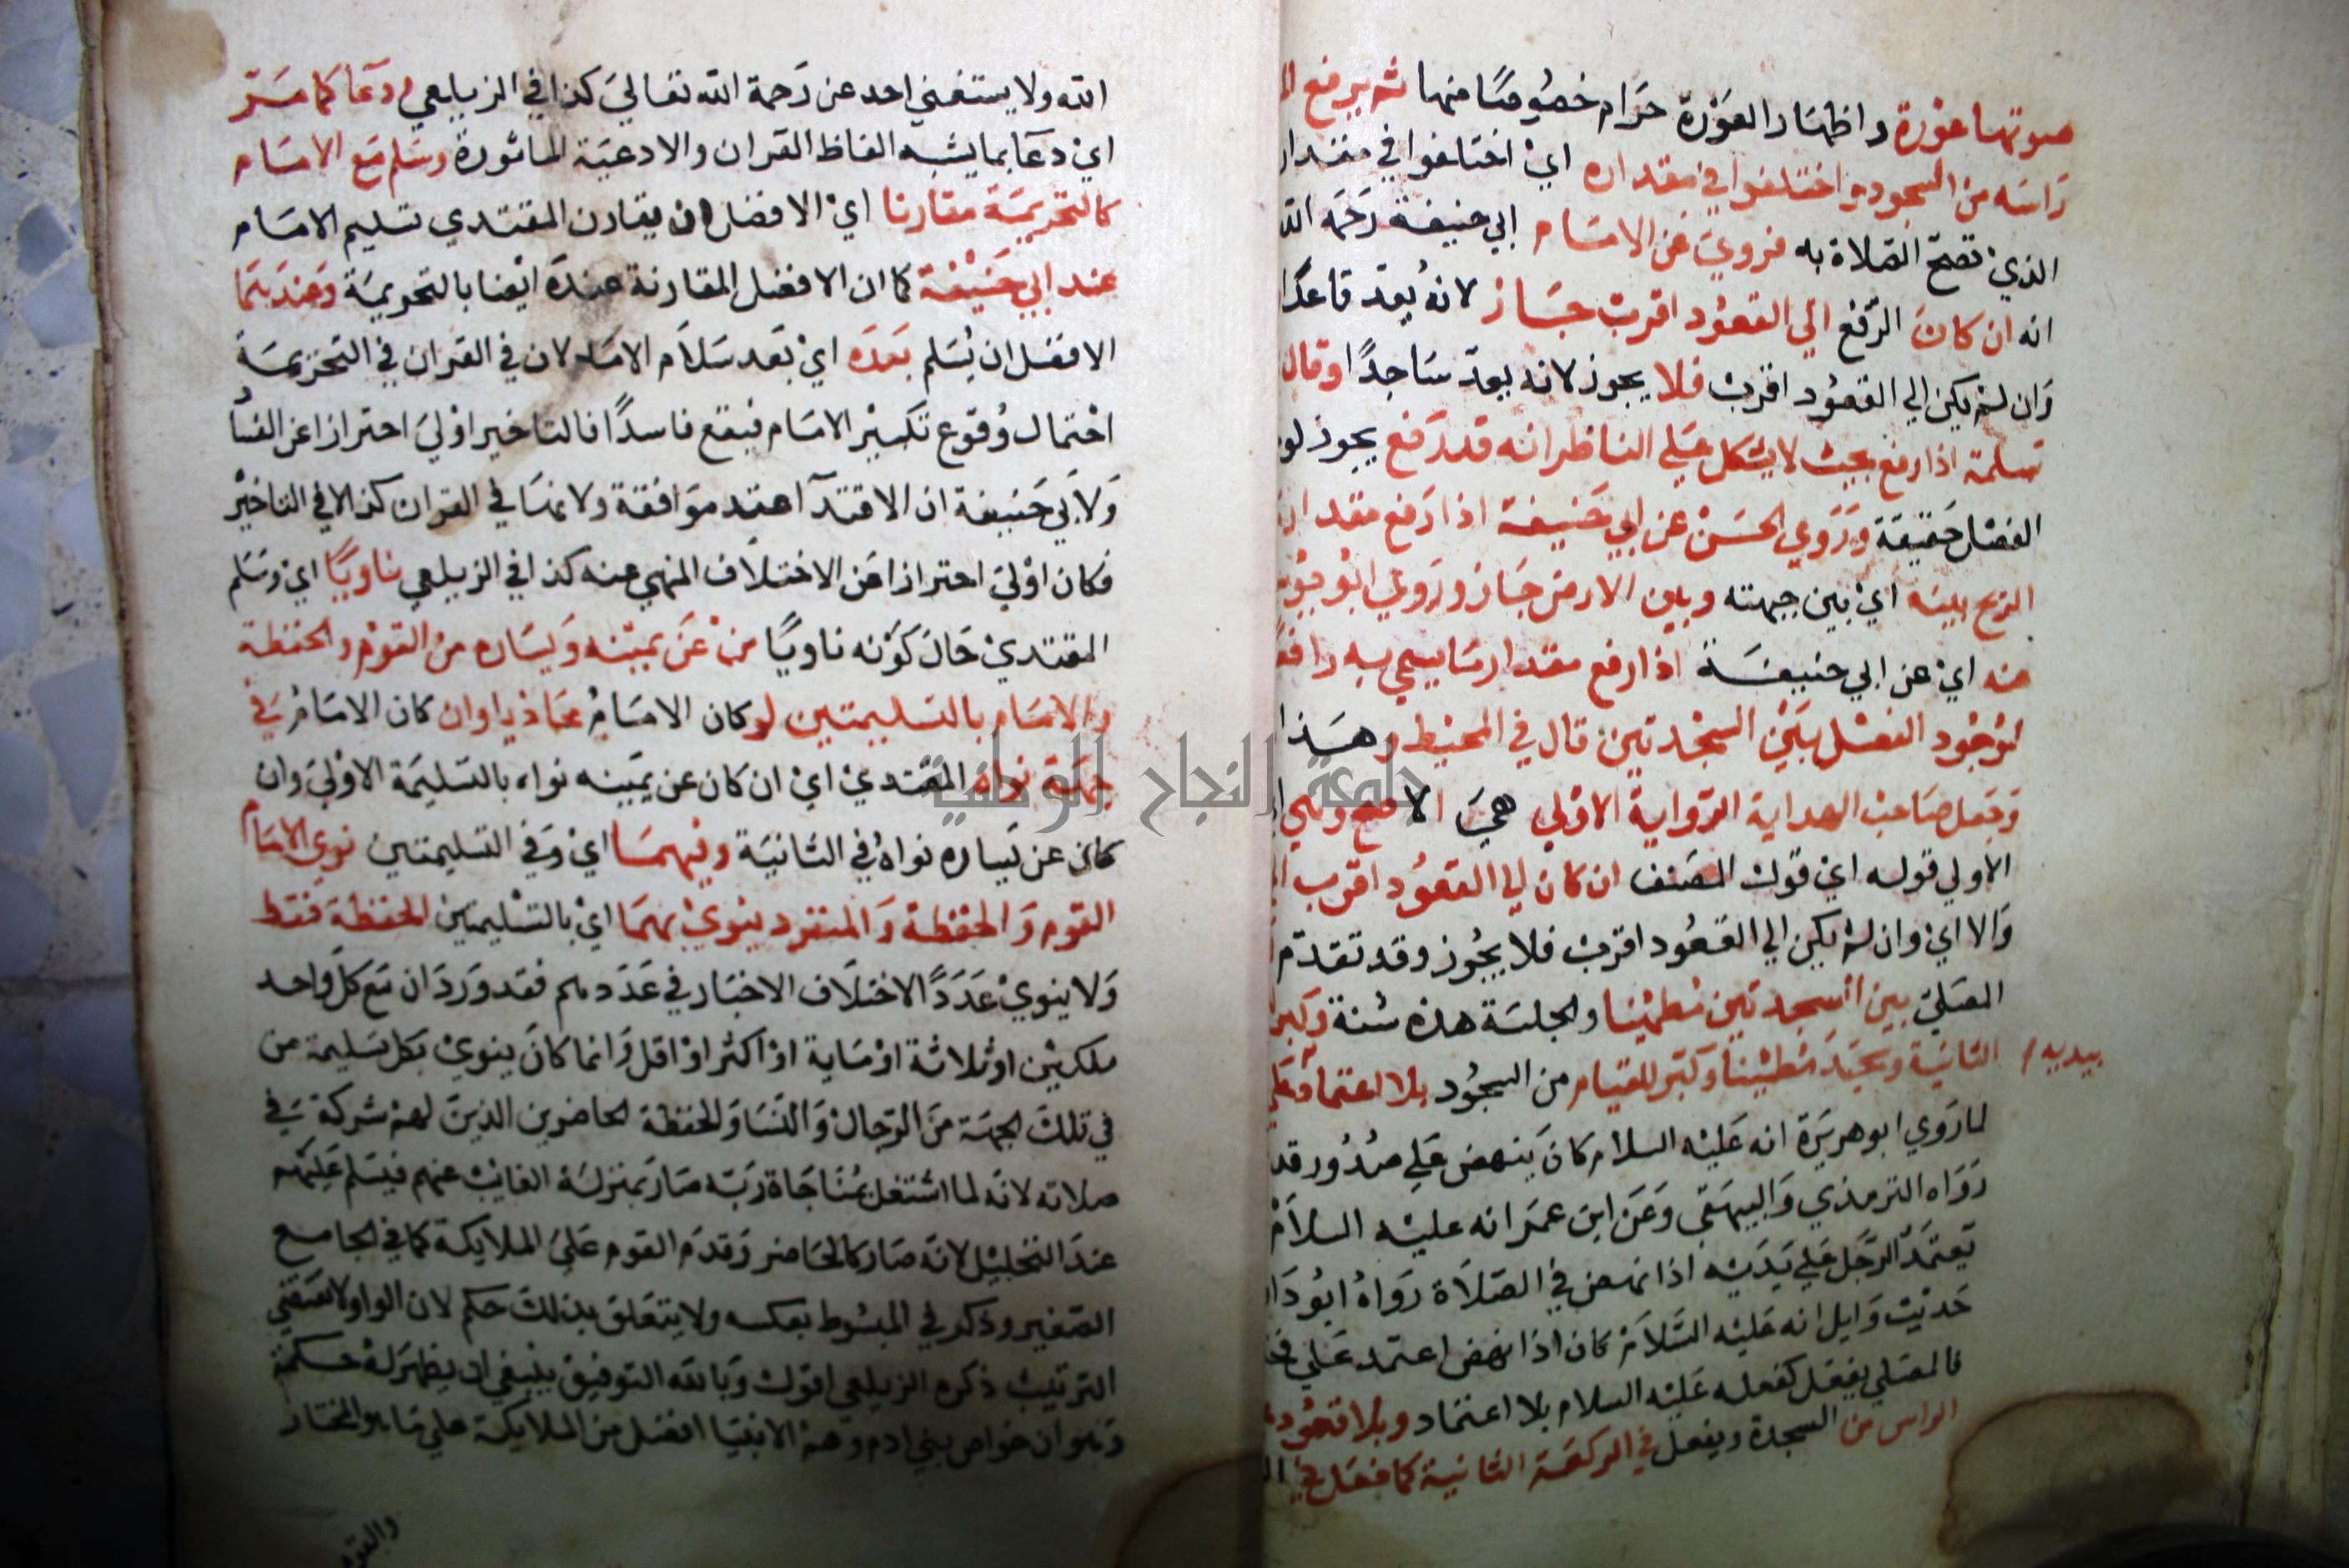 صوتها عورة واظهار العورة حرام خصوصا منها ثم يرفع
راسه من السجود واختلفوا في مقداره اي اختلفوا في مقدار
الذي تصح الصلاة به فروي عن الامام ابي حنيفة رحمه الله
انه ان كان الرفع الي القعود اقرب جاز لانه يعد قاعدا
وان لم يكن الي القعود اقرب فلا يجوز لانه يعد ساجدا وقال
سلمة اذا رفع بحيث لا يشكل علي الناظر انه قد رفع يجوز
الفصل حقيقة وروي الحسن عن ابي حنيفة اذا رفع مقدار
الريح بينه اي بين جبهته وبين الارض جاز وروي ابو يوسف
عنه اي عن ابي حنيفة اذا رفع مقدار ما يسمي به رافعا
لوجود الفصل بين السجدتين قال في المحيط وهذا
وجعل صاحب الهداية الرواية الاولي هي الاصح وهي
الاولي قوله اي قول المصنف ان كان الي القعود اقرب
والا اي وان لم يكن الي القعود اقرب فلا يجوز وقد تقدم
المصلي بين السجدتين مطمئنا والجلسة هذه سنة وكبر
الثانية وسجد مطمئنا وكبر للقيام من السجود بلا اعتماد علي
بيديه
لما روي ابو هريرة انه عليه السلام كان ينهض علي صدور
رواه الترمذي والبيهقي وعن ابن عمر انه عليه السلام
يعتمد الرجل علي يديه اذا نهض في الصلاة رواه ابو
حديث وايل انه عليه السلام كان اذا نهض اعتمد علي
فالمصلي يفعل كفعله عليه السلام بلا اعتماد وبلا قعود
الراس من السجدة ويفعل في الركعة الثانية كما فعل في
الله ولا يستغني احد عن رحمة الله تعالي كذا في الزيلعي ودعا كما مر
اي دعا بما يشبه الفاظ القران والادعية الماثورة وسلم مع الامام
كالتحريمة مقارنا اي الافضل ان يقارن المقتدي تسليم الامام
عند ابي حنيفة كما ان الافضل المقارنة عنده ايضا بالتحريمة وعندهما
الافضل ان يسلم بعده اي بعد سلام الامام لان في القران في التحريمة
احتمال وقوع تكبير الامام فيقع فاسدا فالتاخير اولي احترازا عن الفساد
ولابي حنيفة ان الاقتدآ عقد موافقة ولانها في القران كذا لا في التاخير
فكان اولي احترازا عن الاختلاف المنهي عنه كذا في الزيلعي ناويا اي وسلم
المقتدي حال كونه ناويا من عن يمينه ويساره من القوم والحفظة
والامام بالتسليمتين لو كان الامام محاذيا وان كان الامام في
جهة نواه المقتدي اي ان كان عن يمينه نواه بالتسليمة الاولي وان
كان عن يساره نواه في الثانية وفيهما اي وفي التسليمتين نوي الامام
القوم والحفظة والمنفرد ينوي بهما اي بالتسليمتين الحفظة فقط
ولا ينوي عددا لاختلاف الاخبار في عددهم فقد ورد ان مع كل واحد
ملكين او ثلاثة او ماية او اكثر او اقل وانما كان ينوي بكل تسليمة من
في تلك الجهة من الرجال والنسا والحفظة الحاضرين الذين لهم شركة في
صلاته لانه لما اشتغل بمناجاة ربه صار بمنزلة الغايب عنهم فيسلم عليهم
عند التحليل لانه صار كالحاضر وقدم القوم علي الملايكة كما في الجامع
الصغير وذكر في المبسوط بعكسه ولا يتعلق بذلك حكم لان الواو لا تقتضي
الترتيب ذكره الزيلعي اقول وبالله التوفيق ينبغي ان يظهر له حكمة
وهو ان خواص بني ادم وهم الانبيا افضل من الملايكة علي ما هو المختار
جامعة النجاح الوطنية